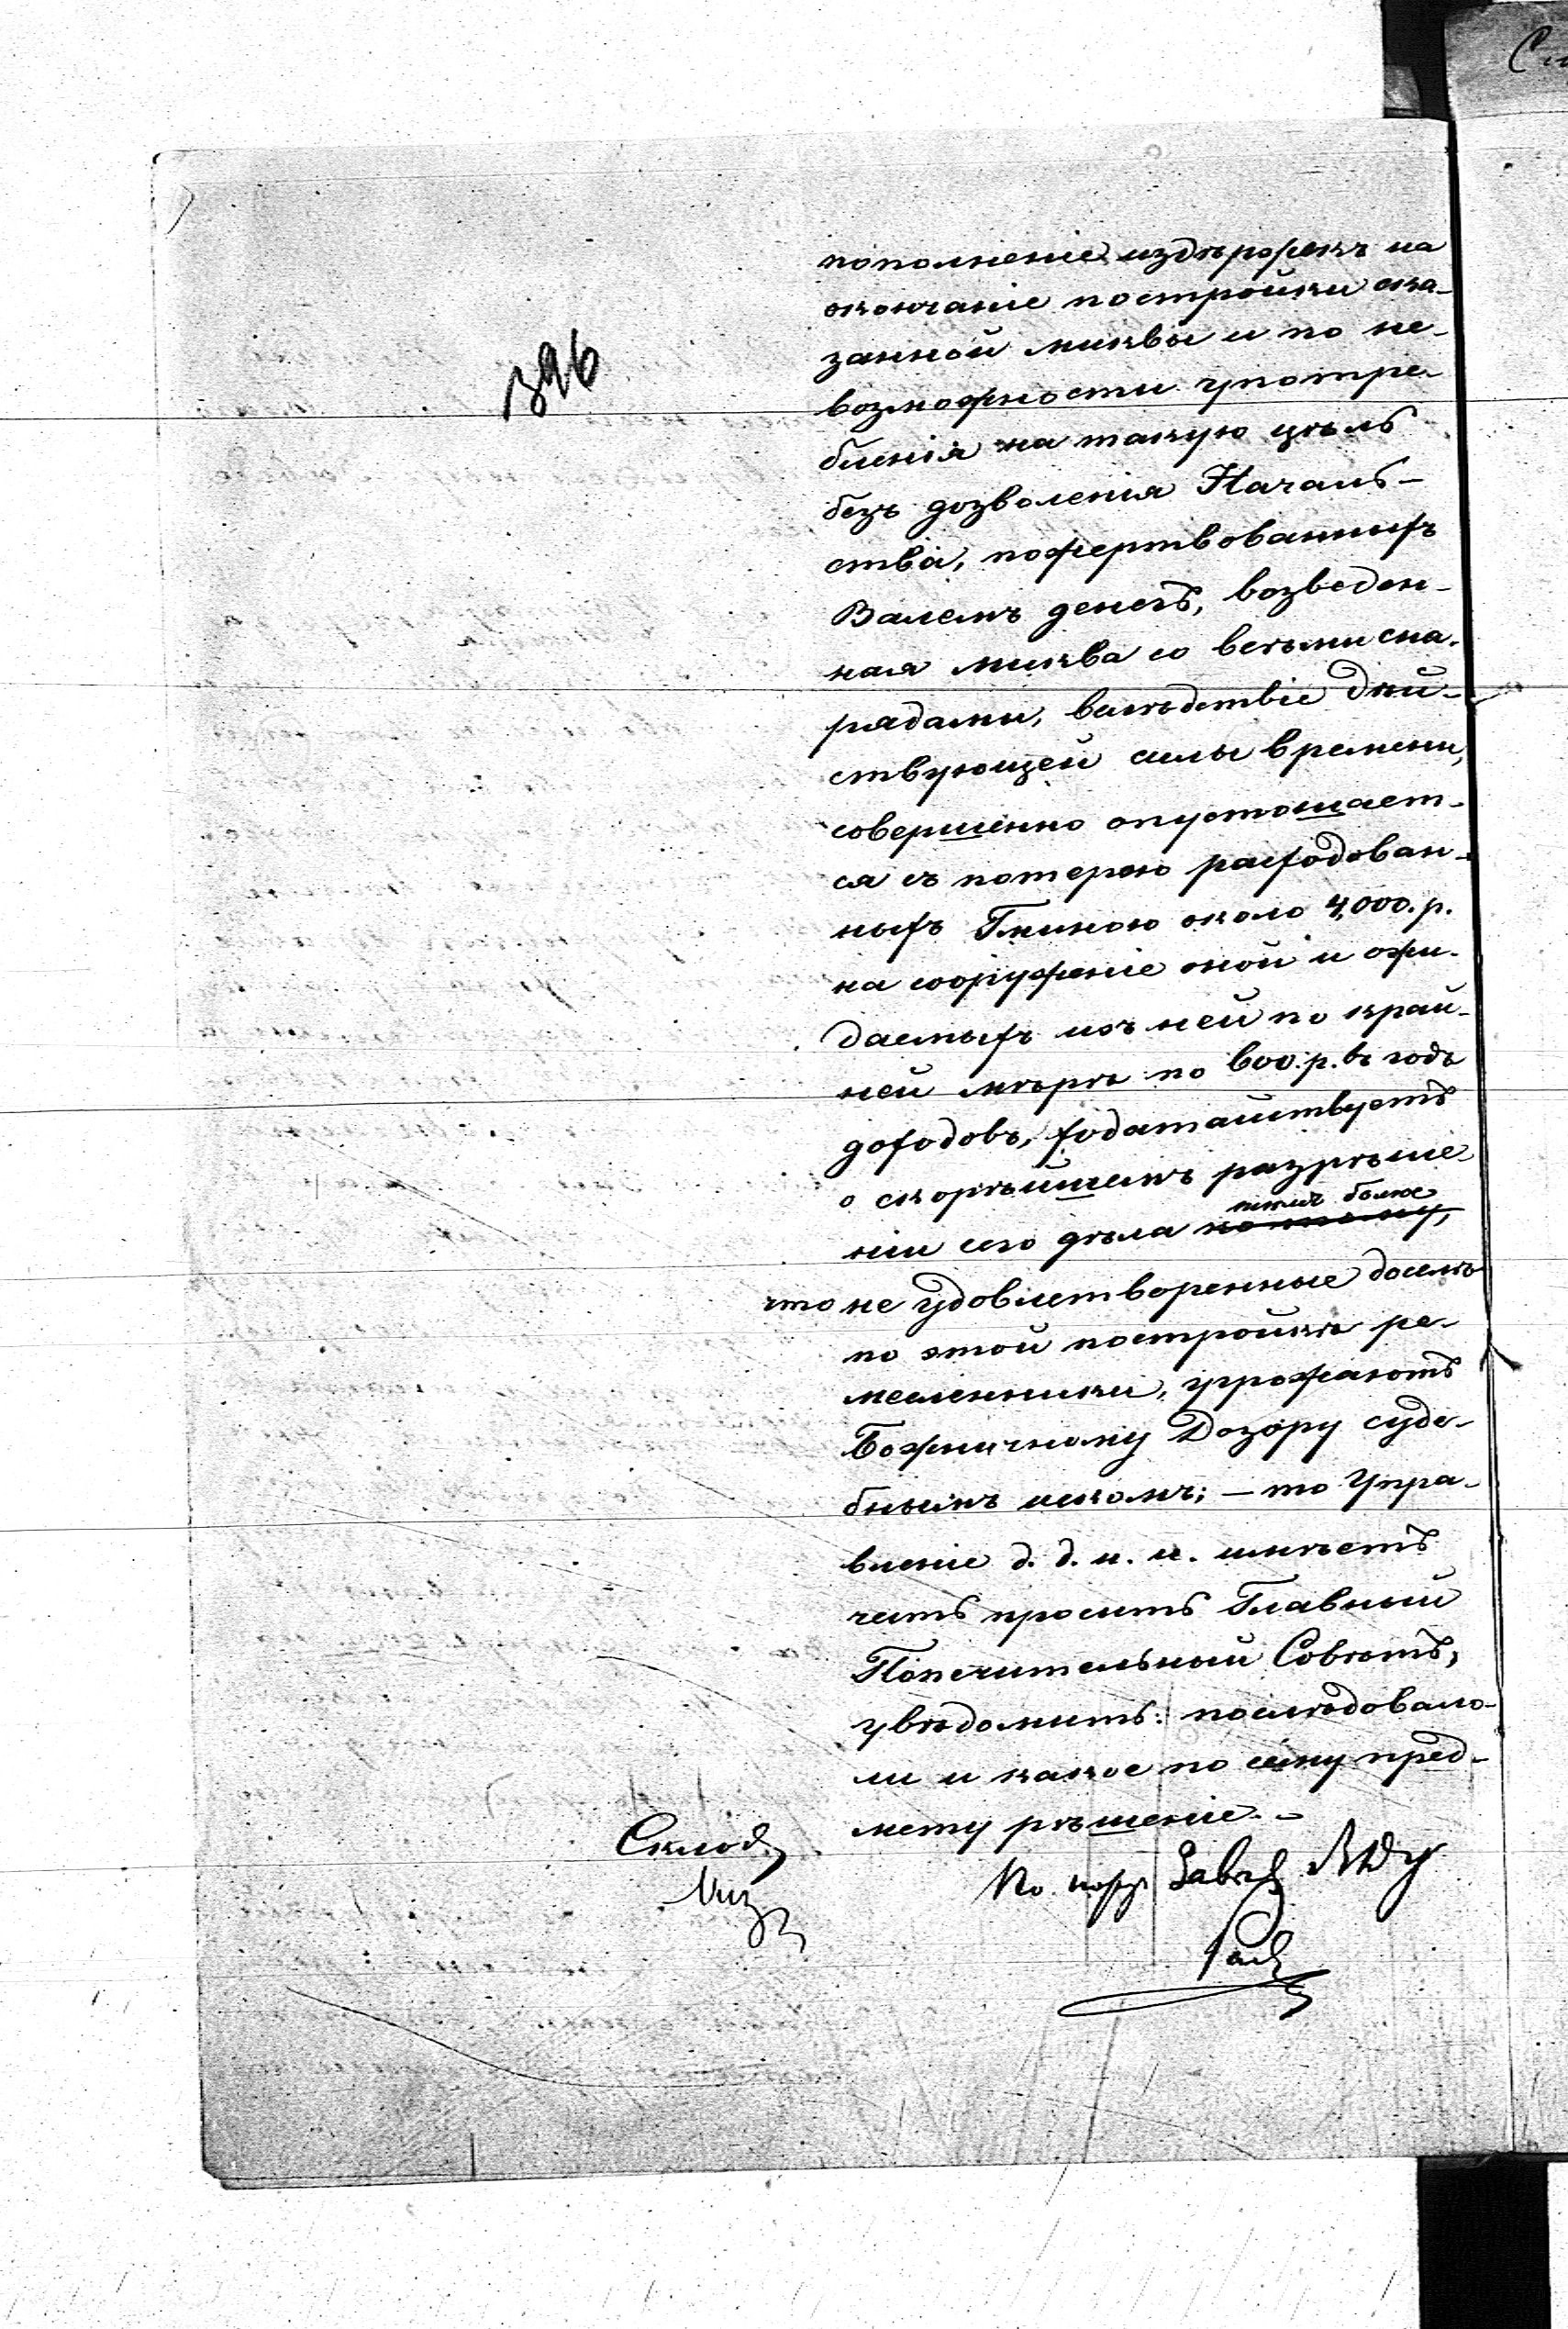 396
пополненіе издержекъ на
окончаніе постройки ска-
занной миквы и по не-
возможности употре-
бленія на такую цѣль
безъ дозволенія Началь-
ства, пожертвованныхъ
Валемъ денегъ, возведен-
ная миква со всѣми сна-
рядами, вслѣдствіе дѣй-
ствующей силы времени,
совершенно опустошает-
ся съ потерею расходован-
ныхъ Гминою около 4,000. р.
на сооруженіе оной и ожи-
даемыхъ изъ ней по край-
ней мѣрѣ по 600. р. въ годъ
доходовъ, ходатайствуетъ
о скорѣйшемъ разрѣше-
ніи сего дѣла тѣмъ болѣе
что не удовлетворенные доселѣ
по этой постройкѣ ре-
месленники, угрожаютъ
Божничному Дозору суде-
бнымъ искомъ; — то Упра-
вленіе д. д. и. и. имѣетъ
честь просить Главный
Попечительный Совѣтъ,
увѣдомить: послѣдовало-
ли и какое по сему пред-
мету рѣшеніе. -